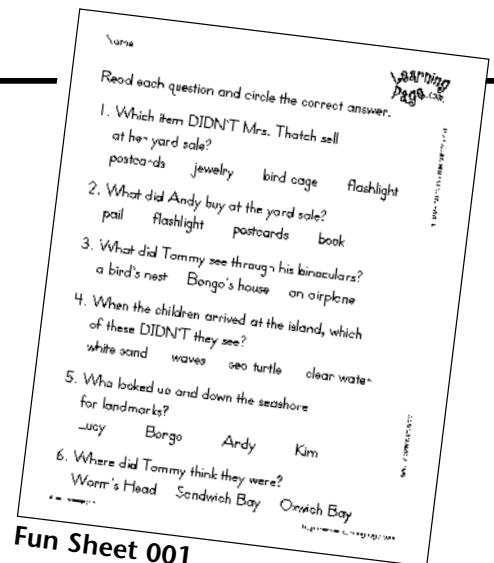 Name
Learning
Page.com
Read each question and circle the correct answer.
1. Which item DIDN'T Mrs. Thatch sell
at her yard sale?
postcards jewelry bird cage flashlight
2. What did Andy buy at the yard sale?
pail flashlight postcards book
3. What did Tommy see through his binoculars?
a bird's nest Bongo's house an airplane
4. When the children arrived at the island, which
of these DIDN'T they see?
white sand waves sea turtle clear water
5. Who looked up and down the seashore
for landmarks?
Lucy Bongo Andy Kim
6. Where did Tommy think they were?
Worm's Head Sandwich Bay Oxwich Bay
Fun Sheet 001